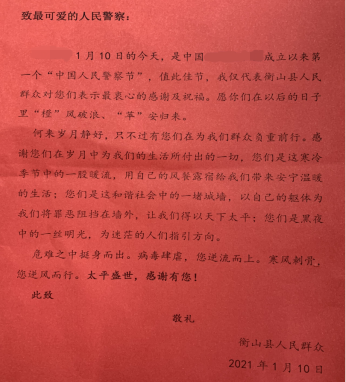 致最可爱的人民警察：
1月10日的今天，是中国 成立以来第
一个“中国人民警察节”，值此佳节，我仅代表衡山县人民
群众对您们表示最衷心的感谢及祝福。愿你们在以后的日子
里“橙”风破浪、“苹”安归来。
何来岁月静好，只不过有您们在为我们群众负重前行。感
谢您们在岁月中为我们的生活所付出的一切，您们是这寒冷
季节中的一股暖流，用自己的风餐露宿给我们带来安宁温暖
的生活；您们是这和谐社会中的一堵城墙，以自己的躯体为
我们将罪恶阻挡在墙外，让我们得以天下太平；您们是黑夜
中的一丝明光，为迷茫的人们指引方向。
危难之中挺身而出。病毒肆虐，您逆流而上。寒风刺骨，
您逆风而行。太平盛世，感谢有您！
此致
敬礼
衡山县人民群众
2021年1月10日